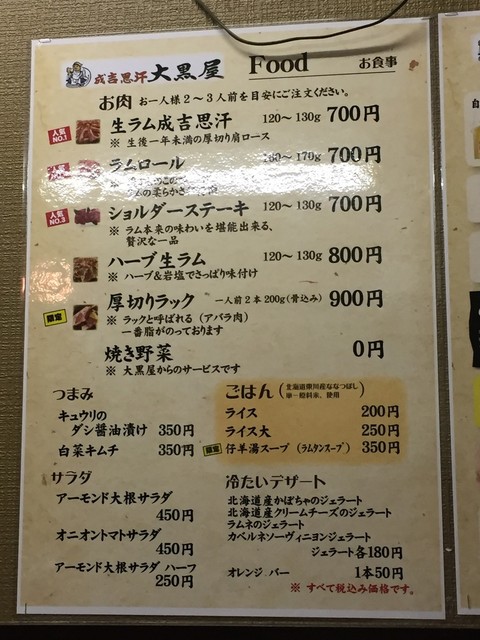 成吉思汗 大黒屋 Food お食事
お肉 お一人様2～3人前を目安にご注文ください。
人気 NO.1 生ラム成吉思汗 120～130g 700円
※ 生後一年未満の厚切り肩ロース
ラムロール 170g 700円
人気 NO.3 ショルダーステーキ 120～130g 700円
※ ラム本来の味わいを堪能出来る、
贅沢な一品
ハーブ生ラム 120～130g 800円
※ ハーブ&岩塩でさっぱり味付け
限定 厚切りラック 一人前2本200g(骨込み) 900円
※ ラックと呼ばれる（アバラ肉）
一番脂がのっております
焼き野菜 0円
※ 大黒屋からのサービスです
つまみ
キュウリの
ダシ醤油漬け 350円
白菜キムチ 350円
サラダ
アーモンド大根サラダ
450円
オニオントマトサラダ
450円
アーモンド大根サラダ ハーフ
250円
ごはん
ライス 200円
ライス大 250円
限定 仔羊湯スープ（ラムタンスープ） 350円
冷たいデザート
北海道産かぼちゃのジェラート
北海道産クリームチーズのジェラート
ラムネのジェラート
カベルネソーヴィニヨンジェラート
ジェラート各180円
オレンジ バー 1本50円
※ すべて税込み価格です。